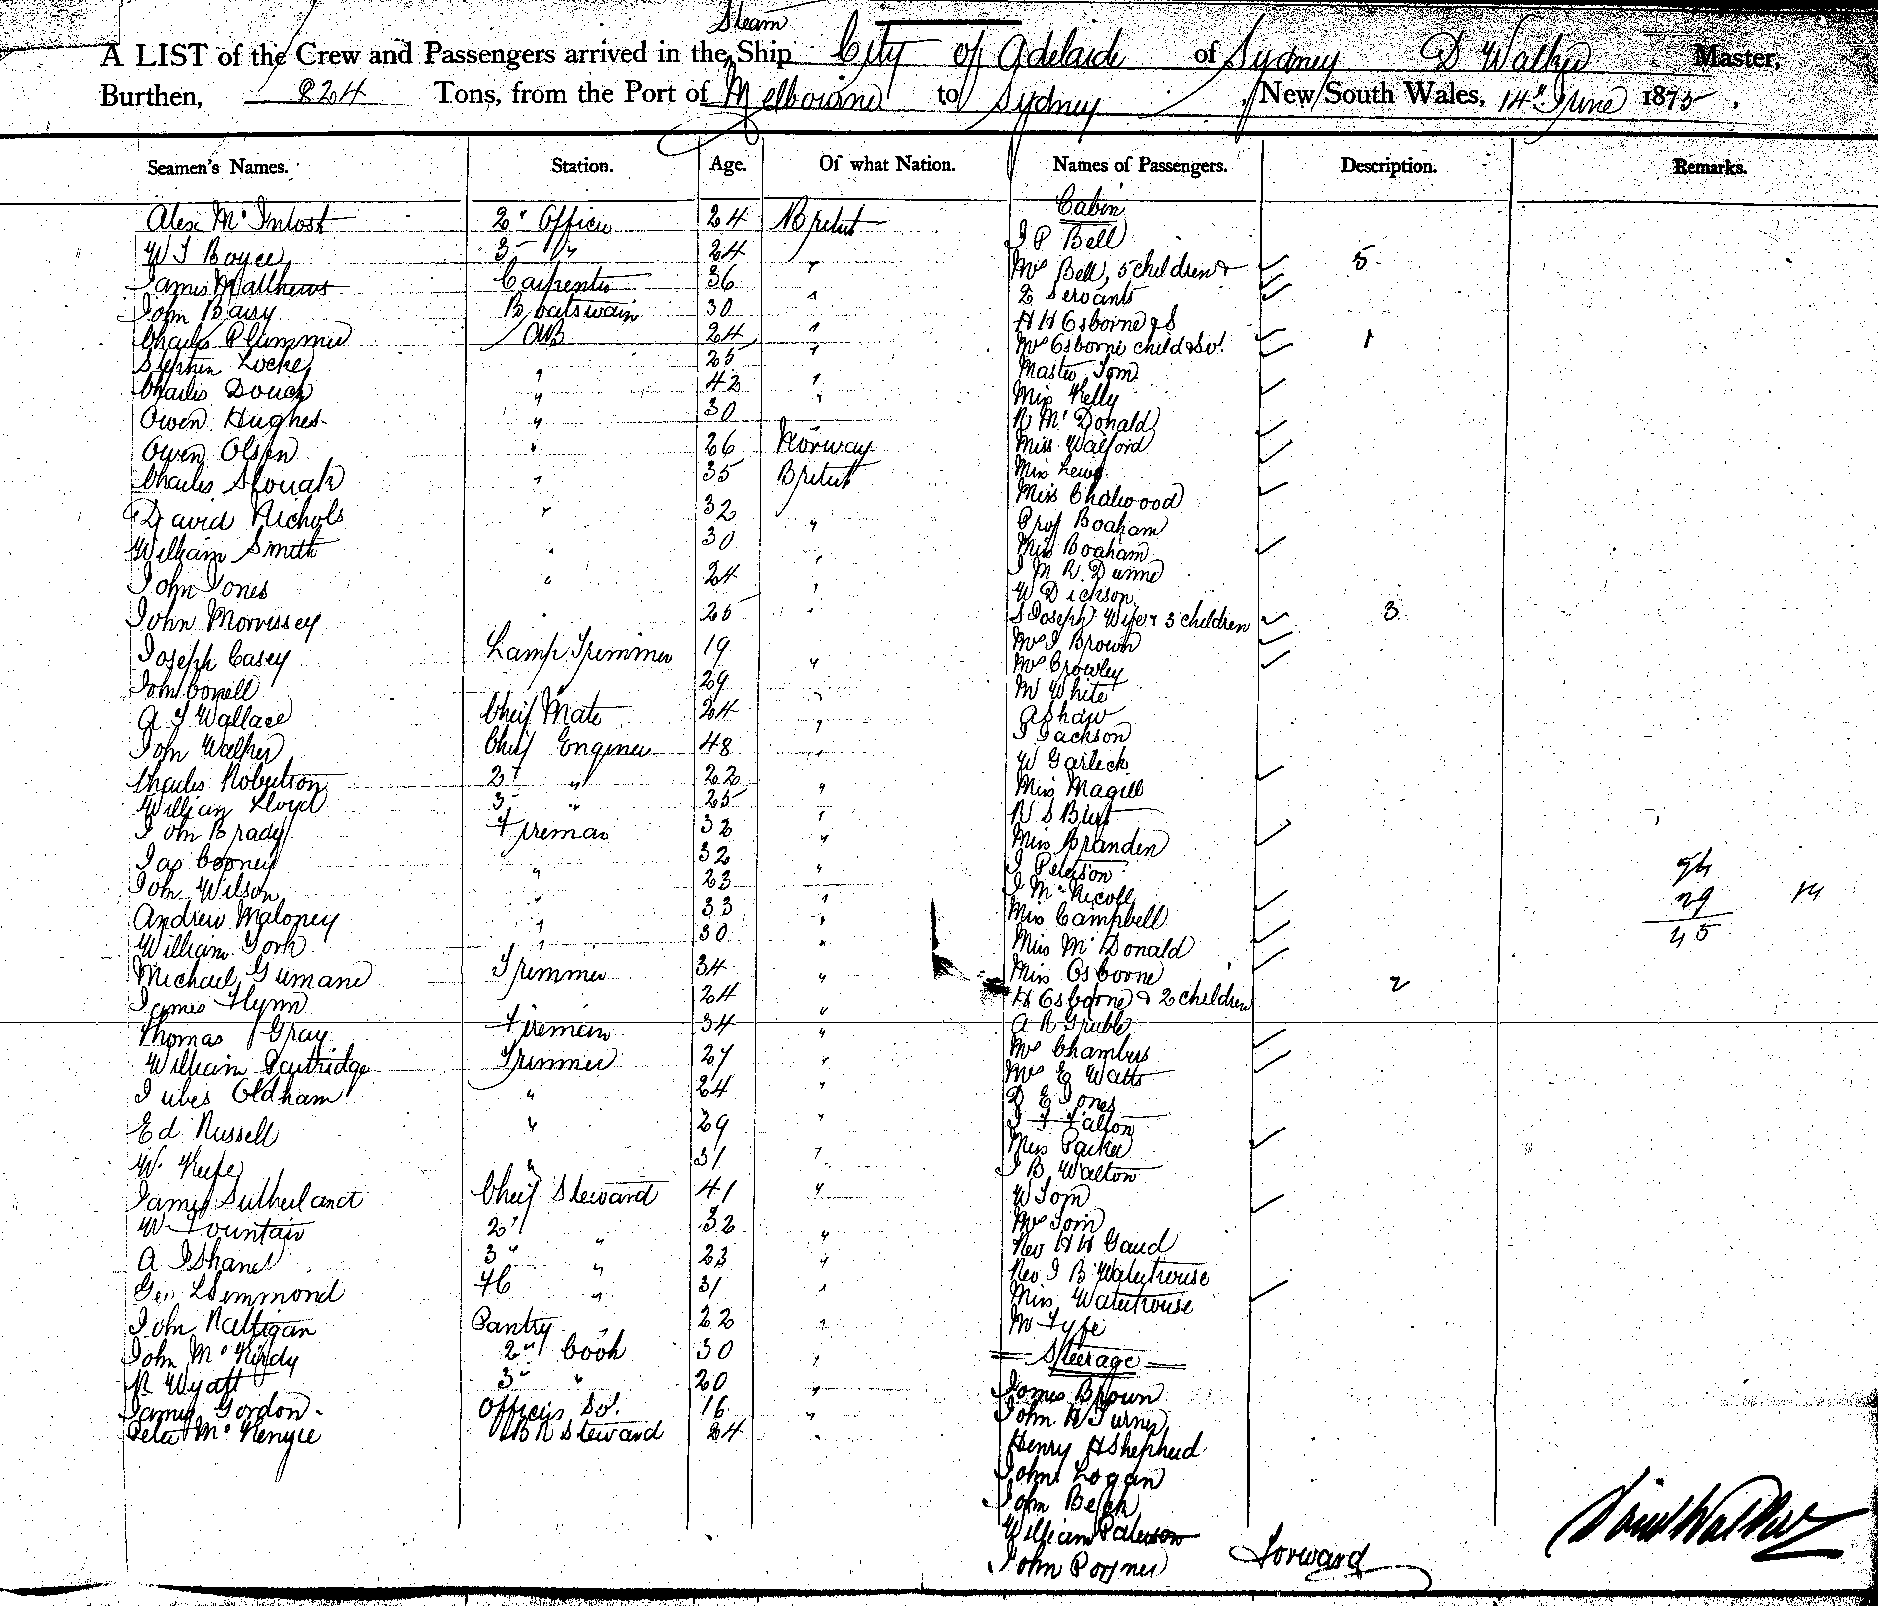 Steam
A LIST of the Crew and Passengers arrived in the Ship City of Adelaide of Sydney D Walker Master,
Burthen, 824 Tons, from the Port of Melbourne to Sydney New South Wales, 14th June 1875.
Seamen's Names. Station. Age. Of what Nation. Names of Passengers. Description. Remarks.
Cabin
Alex McIntosh 2d Officer 24 British
J P Bell
W J Boyce 3 " 24
Mrs Bell, 5 children & 5
James Matthews Carpenter 36 "
2 Servants
John Barry Boatswain 30 "
H H Osborne & S
Charles Plummer AB 24 "
Mrs Osborne child & Svt. 1
Stephen Locke " 25 "
Master Tom
Charles Dough " 42 "
Miss Kelly
Owen Hughes " 30 "
R McDonald
Owen Olsen " 26 Norway
Miss Walford
Charles Slough " 35 British
Miss Lewis
Miss Chalwood
David Nichols " 32 "
Prof Boaham
William Smith " 30 "
Miss Boaham
J M R Dunne
John Jones " 24 "
W Dickson
John Morrissey " 25 "
S Joseph Wife & 3 children 3
Mrs J Brown
Joseph Casey Lamp Trimmer 19 "
Mrs Crowley
John Conell " 29 "
M White
A J Wallace Cheif Mate 24 "
A Shaw
J Jackson
John Walker Cheif Engineer 48 "
W Garleck
Charles Robertson 2d " 22 "
Miss Magill
William Lloyd 3 " 25 "
R S Birt
John Brady Fireman 32 "
Miss Branden
Jas Cooney " 32 "
J Peterson
John Wilson " 23 "
J McNicoll
Andrew Maloney " 33 "
Mrs Campbell
29 14
William York " 30 "
Miss McDonald
45
Michael Gumane Trimmer 34 "
Miss Osborne
James Flynn 24 "
H Osborne & 2 children 2
Thomas Gray Fireman 34 "
A R Gruble
William Partridge Trimmer 27 "
Mrs Chambers
Mrs E Watts
Jules Oldham " 24 "
D E Jones
J F Fallon
Ed Russell " 29 "
Miss Parker
W. Keefe " 31 "
J B Walton
James Sutherland Cheif Steward 41 "
W Tom
W Fountain 2d " 32 "
Mrs Tom
Rev H H Gaud
A J Shane 3d " 23 "
Rev J B Waterhouse
Geo Dimmond 4th " 31 "
Miss Waterhouse
John Rattigan Pantry 22 "
Mr Fyfe
John McKirdy 2nd Cook 30 "
Steerage
R Wyatt 3 " 20 "
James Brown
James Gordon Officers St. 16 "
John R Turner
Peter McKenzie B R Steward 24 "
Henry H Shepherd
John Logan
John Beach
William Paterson
John Poyner Forward
David Walker